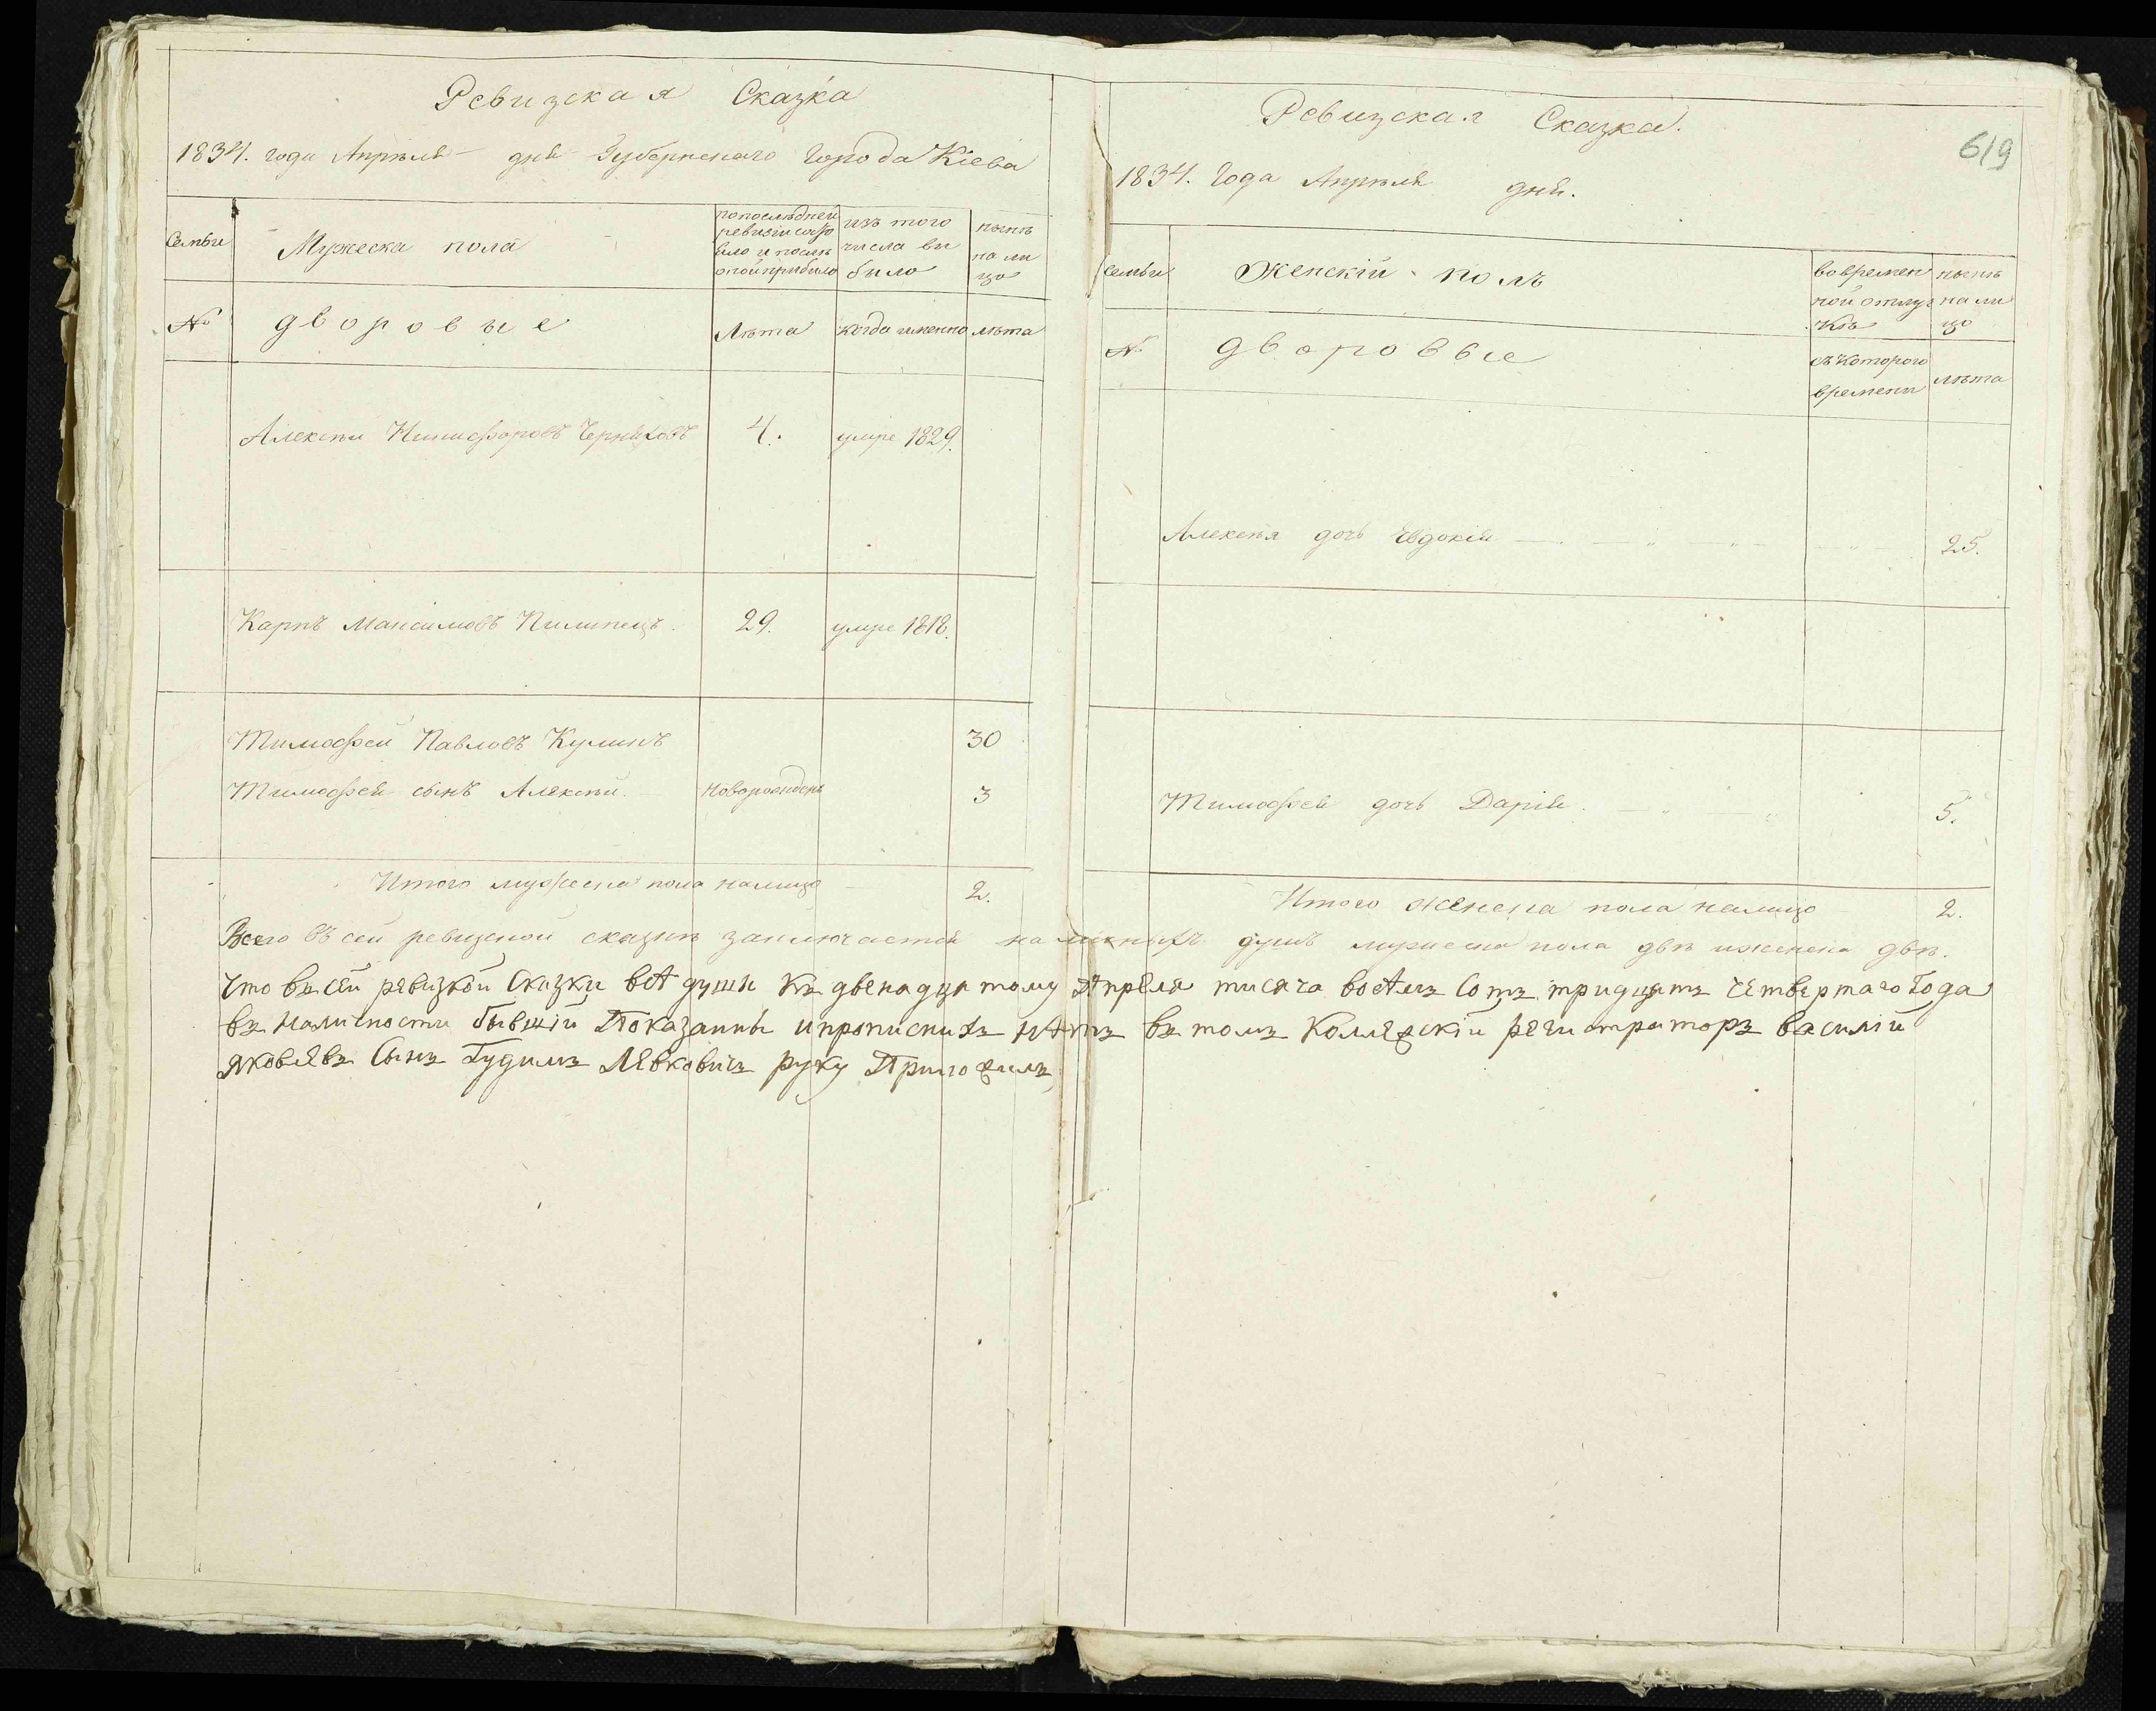 Ревизская Сказка
1834. года Апрѣля дня Губернскаго Города Кіева
семьи
Мужеска пола
по последней
ревизіи состо
яло и послѣ
оной прибыло
изъ того
числа вы
было
нынѣ
на ли
цо
№
дворовые
Лѣта
когда именно
лѣта
Алексѣй Никифоровъ Черняховъ
4.
умре 1829.
Карпъ Максимовъ Пилипецъ.
29.
умре 1818.
Тимофей Павловъ Кулинъ
30
Тимофея сынъ Алексѣй.
новорожденъ
3
Итого мужеска пола налицо
2.
Ревизская Сказка.
619
1834. Года Апрѣля дня.
семьи
Женскій полъ
во времен
ной отлуч
кѣ
нынѣ
на ли
цо
№
дворовые
съ котораго
времени
лѣта
Алексѣя дочь Евдокія
25.
Тимофея дочь Дарія.
5.
Итого женска пола налицо
2.
Всего въ сей ревизской сказкѣ заключается наличныхъ душъ мужеска пола двѣ и женска двѣ.
Что въ сей ревизкой Сказки всѣ души къ двенадцатому Апреля тисяча восѣмъ Сотъ тридцять Четвертаго Года
въ Наличности бывшій Показанны и прописнихъ нѣтъ въ томъ Коллежскій регистраторъ василій
Яковлевъ Сынъ Гудимъ Левковичъ руку Приложилъ